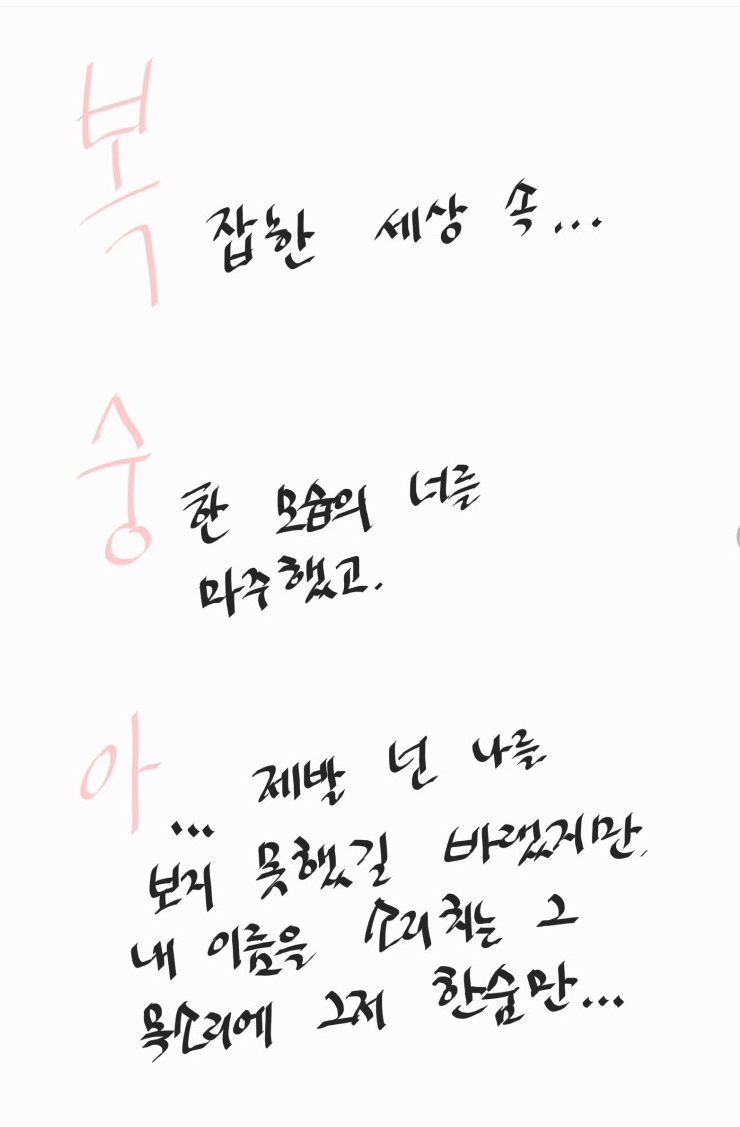 복잡한 세상 속...
숭한 모습의 너를
마주했고.
아... 제발 넌 나를
보지 못했길 바랬지만,
내 이름을 소리치는 그
목소리에 그저 한숨만...